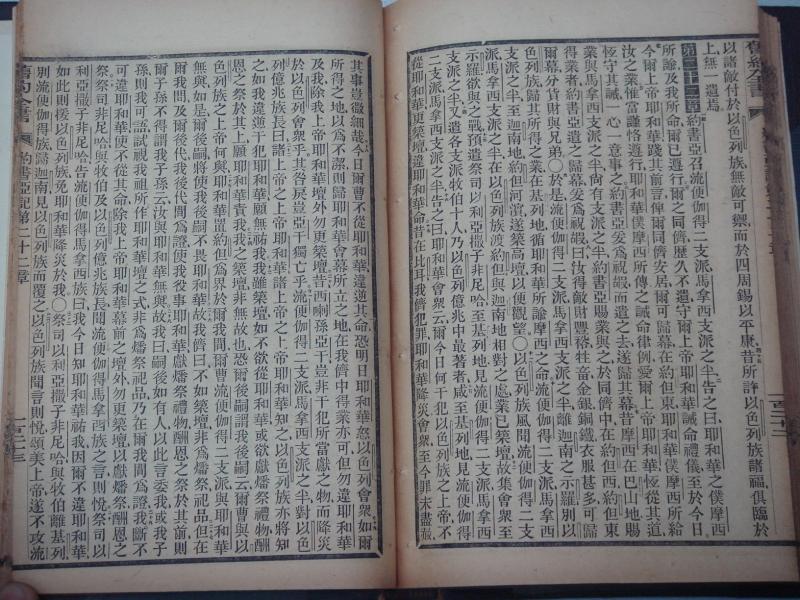 舊約全書
以諸敵付於以色列族無敵可禦而於四周錫以平康昔所許以色列族諸福俱臨於
上無一遺焉
第二十二章 約書亞召流便伽得二支派馬拿西支派之半告之曰耶和華之僕摩西
所諭及我所命爾已遵行爾之同儕歷久不遺守爾上帝耶和華誡命禮儀至於今日
今爾上帝耶和華踐其前言俾爾同儕安居爾可歸幕在約但東耶和華僕摩西所給
汝之業惟當謹恪遵行耶和華僕摩西所傳之誡命律例愛爾上帝耶和華恆從其道
恆守其誡一心一意事之約書亞妥爲祝嘏而遣之去遂歸其幕昔摩西在巴山地賜
業與馬拿西支派之半尚有支派之半約書亞賜業與之於同儕中在約但西約但東
得業者約書亞遣之歸幕妥爲祝嘏曰汝得敵財豐裕牲畜金銀銅鐵衣服甚多可歸
爾幕分貨財與兄弟○於是流便伽得二支派馬拿西支派之半離迦南之示羅別以
色列族歸其所得之業在基列地循耶和華所諭摩西之命流便伽得二支派馬拿西
支派之半至迦南地約但河濱遂築高壇以便觀望○以色列族風聞流便伽得
二支派馬拿西支派之半在以色列族渡約但與迦南地相對之處業已築壇故集會衆至
示羅欲與之戰預遣祭司以利亞撒子非尼哈至基列地見流便伽得二支派馬拿西
支派之半又遣各支派牧伯十人乃以色列億兆中最著者咸至基列地見流便伽得
二支派馬拿西支派之半告之曰耶和華會衆云爾今日何干犯以色列族之上帝
從耶和華更築壇違耶和華命昔在比耳我儕犯罪耶和華降災會衆至今罪未盡蔽
一百二十二
其事豈微細哉今日爾曹不從耶和華違逆其命恐明日耶和華怒以色列會衆如爾
所得之地以爲不潔則歸耶和華會幕所立之地在我儕中得業亦可但勿違耶和華
及我除我上帝耶和華壇外勿更築壇昔西喇孫亞干豈非干犯所當獻之物而降災
於以色列會衆乎其咎戾豈亞干獨亡乎流便伽得二支派馬拿西支派之半對以色
列億兆族長曰諸上帝之上帝耶和華諸上帝之上帝耶和華知之以色列族亦將知
之如我違逆干犯耶和華願無祐我我雖築壇如不欲從耶和華或欲獻燔祭禮物酬
恩之祭於其上願耶和華責我我之築壇非無故也恐爾後嗣謂我後嗣云爾曹與以
色列族之上帝何與耶和華置約但爲界於爾我間爾曹流便伽得二支派與耶和華
無與如是爾後嗣將使我後嗣不畏耶和華故我儕曰不如築壇非爲燔祭祀品但在
爾我間及爾後代我後代間爲證使我役事耶和華獻燔祭禮物酬恩之祭於其前則
爾子孫不得謂我子孫云汝與耶和華無與故我曰嗣後如有人以此言委我或我子
孫則我可語試視我祖所作耶和華壇之式非爲燔祭祀品乃在爾我間爲證我斷不
可違耶和華使不從其命除我上帝耶和華幕前之壇外勿更築壇以獻燔祭酬恩之
祭祭司非尼哈與牧伯及以色列億兆族長聞流便伽得馬拿西族之言則悅祭司以
利亞撒子非尼哈告流便伽得馬拿西族曰我今日知耶和華祐我因爾不違耶和華
如此則援以色列族免耶和華降災於我○祭司以利亞撒子非尼哈與牧伯離基列
別流便伽得族歸迦南見以色列族而覆之以色列族聞言則悅頌美上帝遂不攻流
舊約全書 約書亞記第二十二章
一百二十三